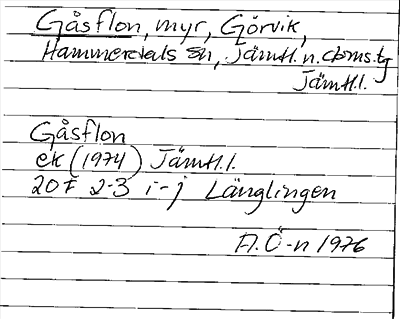 Gåsflon, myr, Görvik,
Hammerdals sn, Jämtl. n. doms.tg
Jämtl.l.
Gåsflon
ek (1974) Jämtl.l.
20F 2-3 i-j Långlingen
A.Ö-n 1976